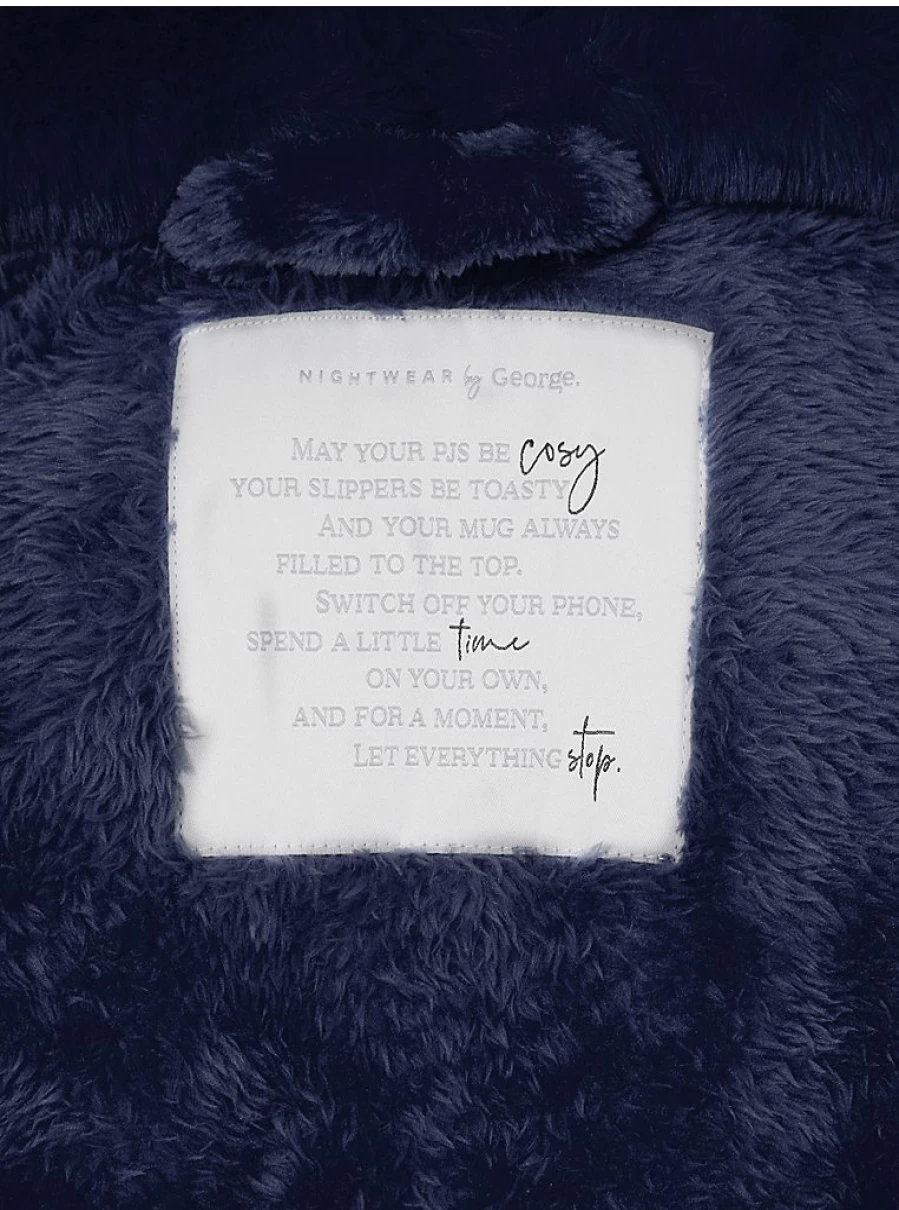 NIGHTWEAR by George.
MAY YOUR PJS BE cosy
YOUR SLIPPERS BE TOASTY
AND YOUR MUG ALWAYS
FILLED TO THE TOP.
SWITCH OFF YOUR PHONE,
SPEND A LITTLE time
ON YOUR OWN,
AND FOR A MOMENT,
LET EVERYTHING stop.